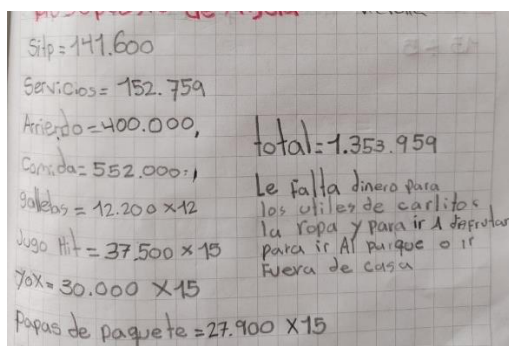 Sitp=141.600
Servicios= 152.759
Arriendo=400.000,
Comida=552.000:,
galletas = 12.200 x12
Jugo Hit= 37.500 x 15
yox= 30.000 x15
Papas de paquete=27.900 X15
total=1.353.959
Le falta dinero para
los utiles de carlitos
la ropa y para ir A disfrutar
para ir Al parque o ir
Fuera de casa